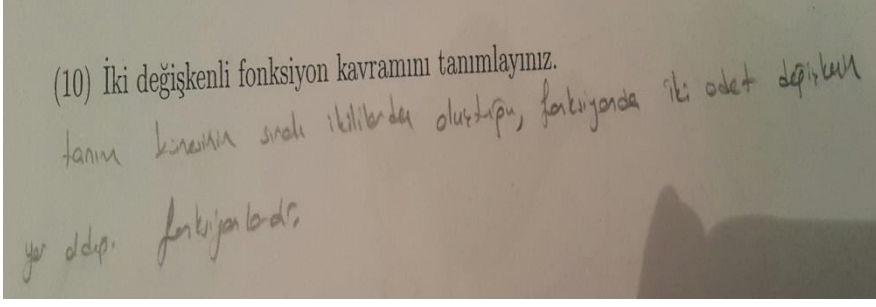 (10) İki değişkenli fonksiyon kavramını tanımlayınız.
tanım kümesinin sıralı ikililerden oluştuğu, fonksiyonda iki adet değişken
yer aldığı fonksiyonlardır.